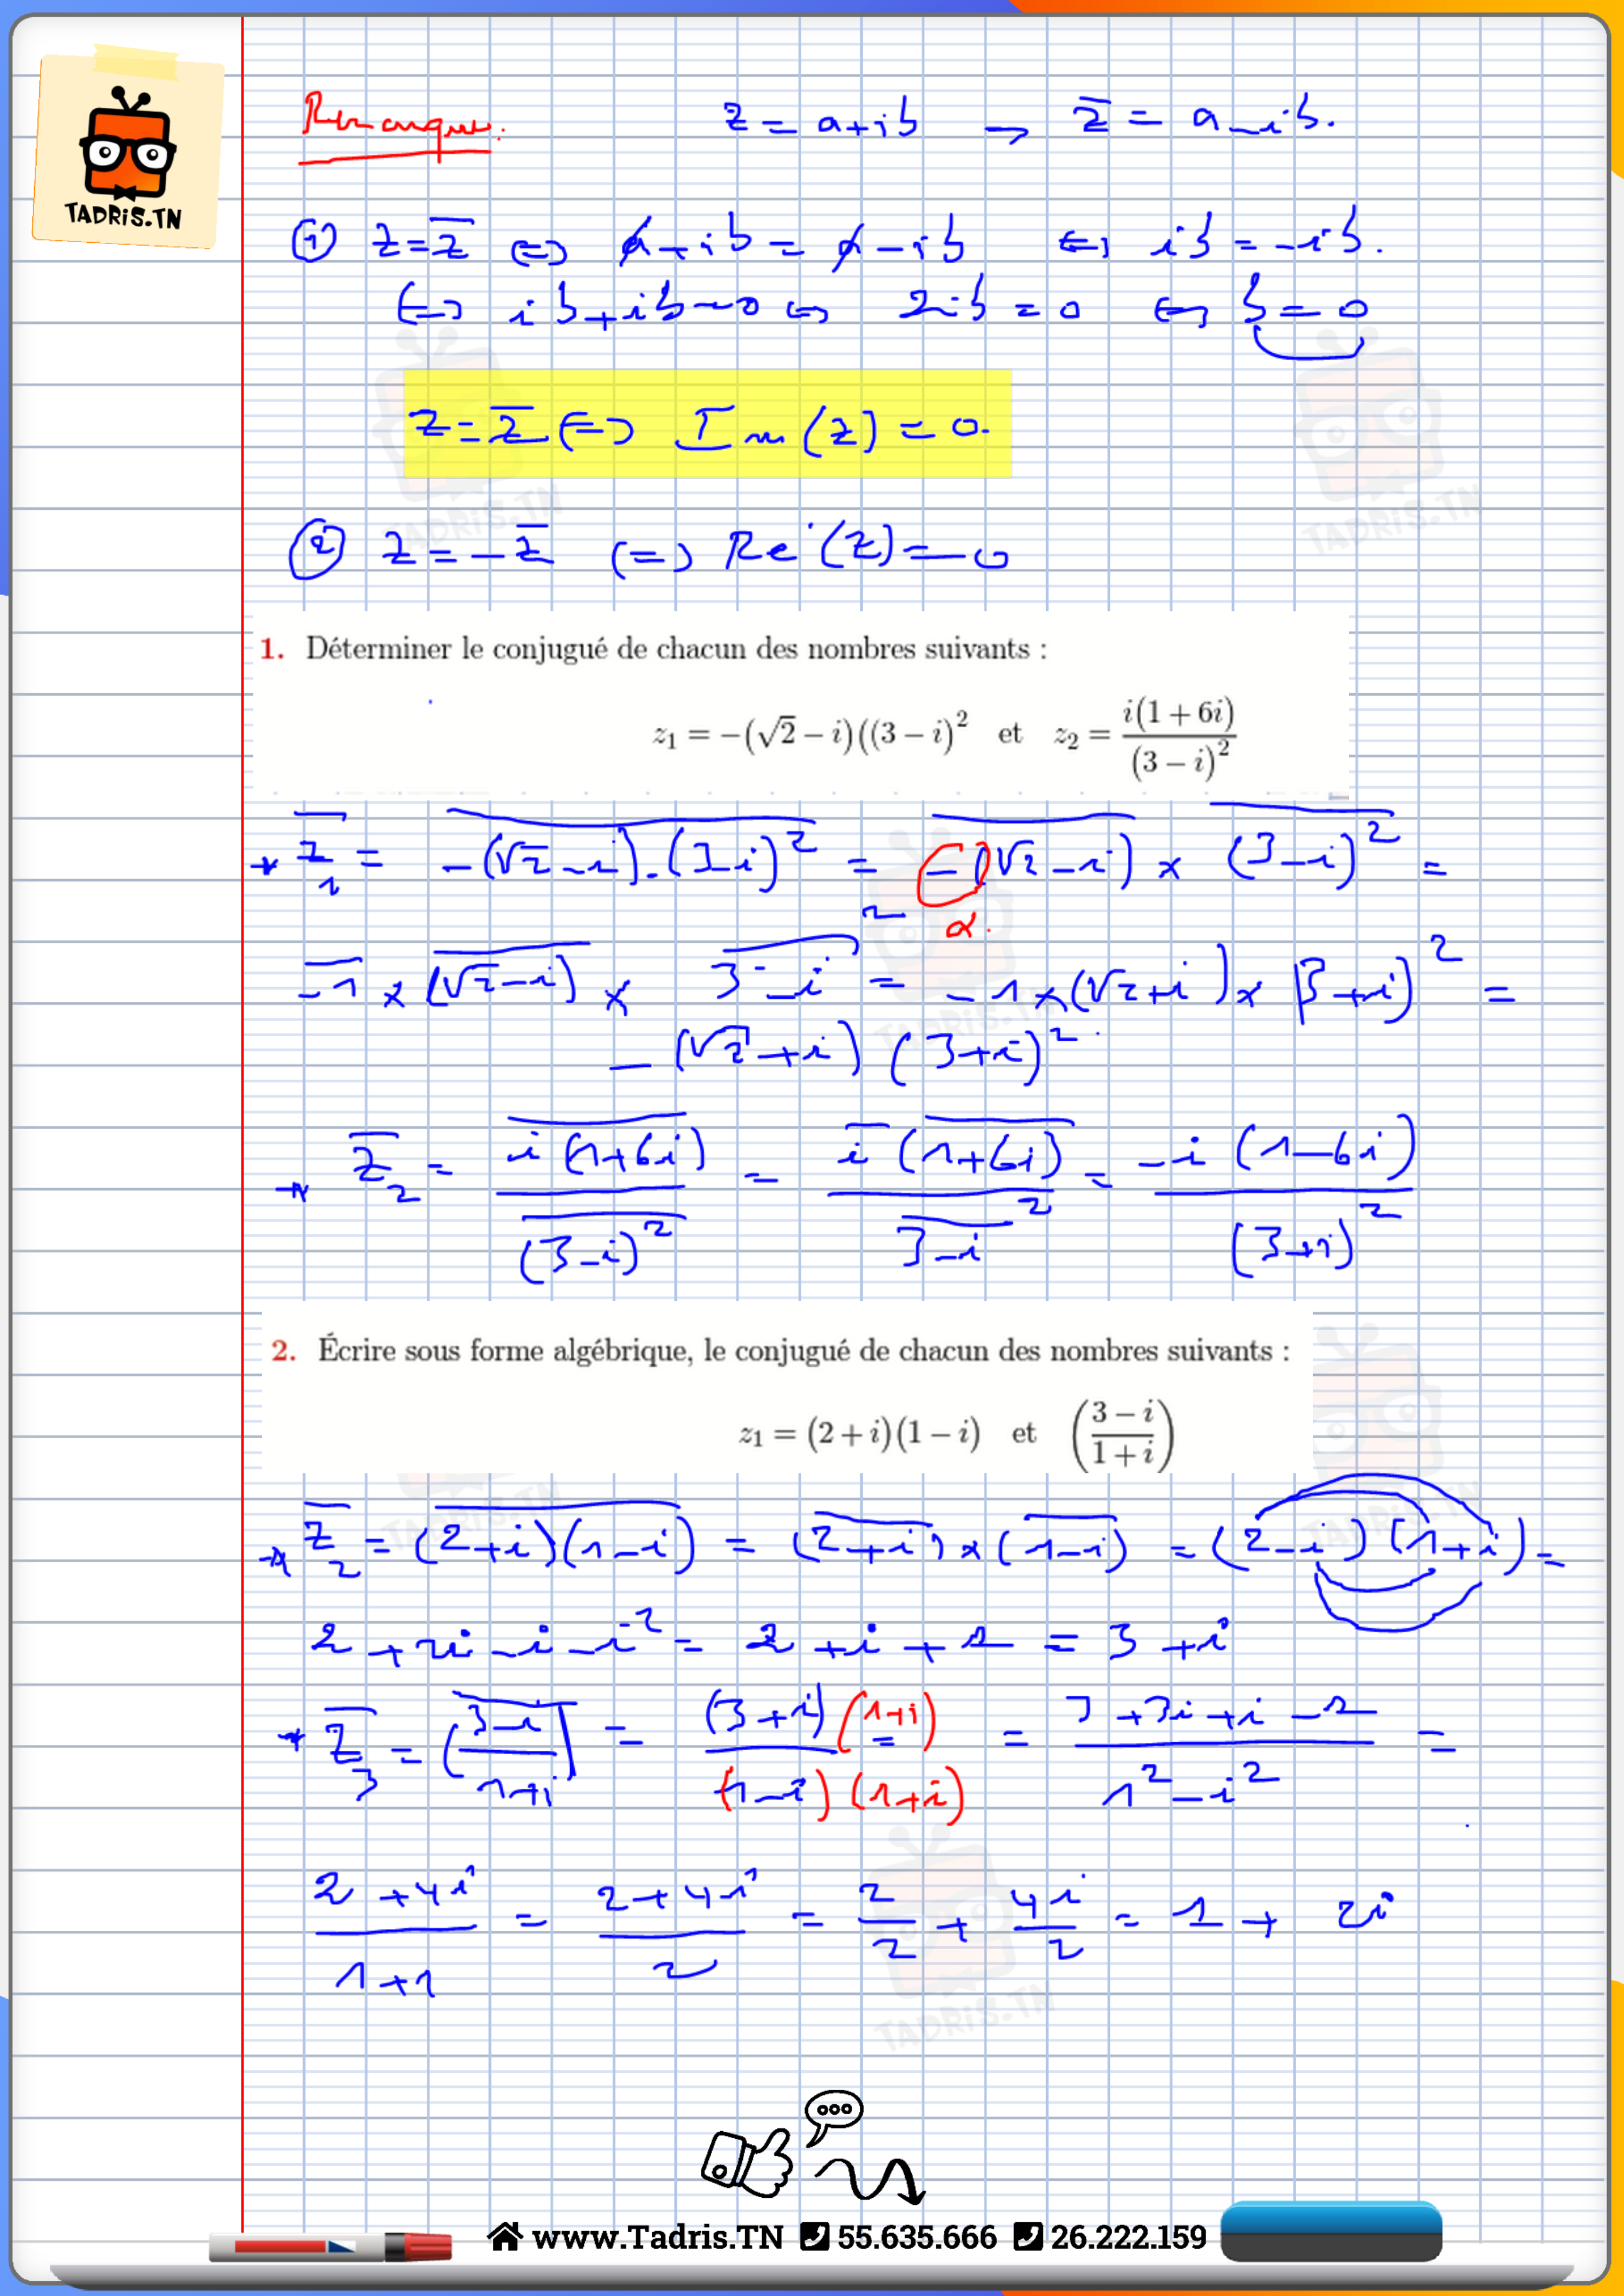 TADRiS.TN
Remarque: z = a+ib → z̅ = a-ib.
① z=z̅ ⇔ a+ib = a-ib ⇔ ib = -ib.
⇔ ib+ib=0 ⇔ 2ib = 0 ⇔ b = 0
z=z̅ ⇔ Im(z) = 0.
② z = -z̅ (=) Re(z) = 0
1. Déterminer le conjugué de chacun des nombres suivants :
z₁ = −(√2 − i)((3 − i)² et z₂ = i(1 + 6i)/(3 − i)²
* z̅₁ = \overline{-(√2-i).(3-i)²} = \overline{-(√2-i)} × \overline{(3-i)²} =
α.
\overline{-1} × \overline{(√2-i)} × \overline{3-i}² = -1×(√2+i)×(3+i)² =
-(√2+i)(3+i)²
* z̅₂ = \overline{i(1+6i)}/\overline{(3-i)²} = i̅ \overline{(1+6i)}/\overline{3-i}² = -i(1-6i)/(3+i)²
2. Écrire sous forme algébrique, le conjugué de chacun des nombres suivants :
z₁ = (2 + i)(1 − i) et ((3 − i)/(1 + i))
* z̅₂ = \overline{(2+i)(1-i)} = \overline{(2+i)}×\overline{(1-i)} = (2-i)(1+i) =
2+2i-i-i² = 2+i+1 = 3+i
* z̅₃ = \overline{((3-i)/(1+i))} = (3+i)(1+i)/(1-i)(1+i) = (3+3i+i-1)/(1²-i²) =
(2+4i)/(1+1) = (2+4i)/2 = 2/2 + 4i/2 = 1 + 2i
www.Tadris.TN 55.635.666 26.222.159